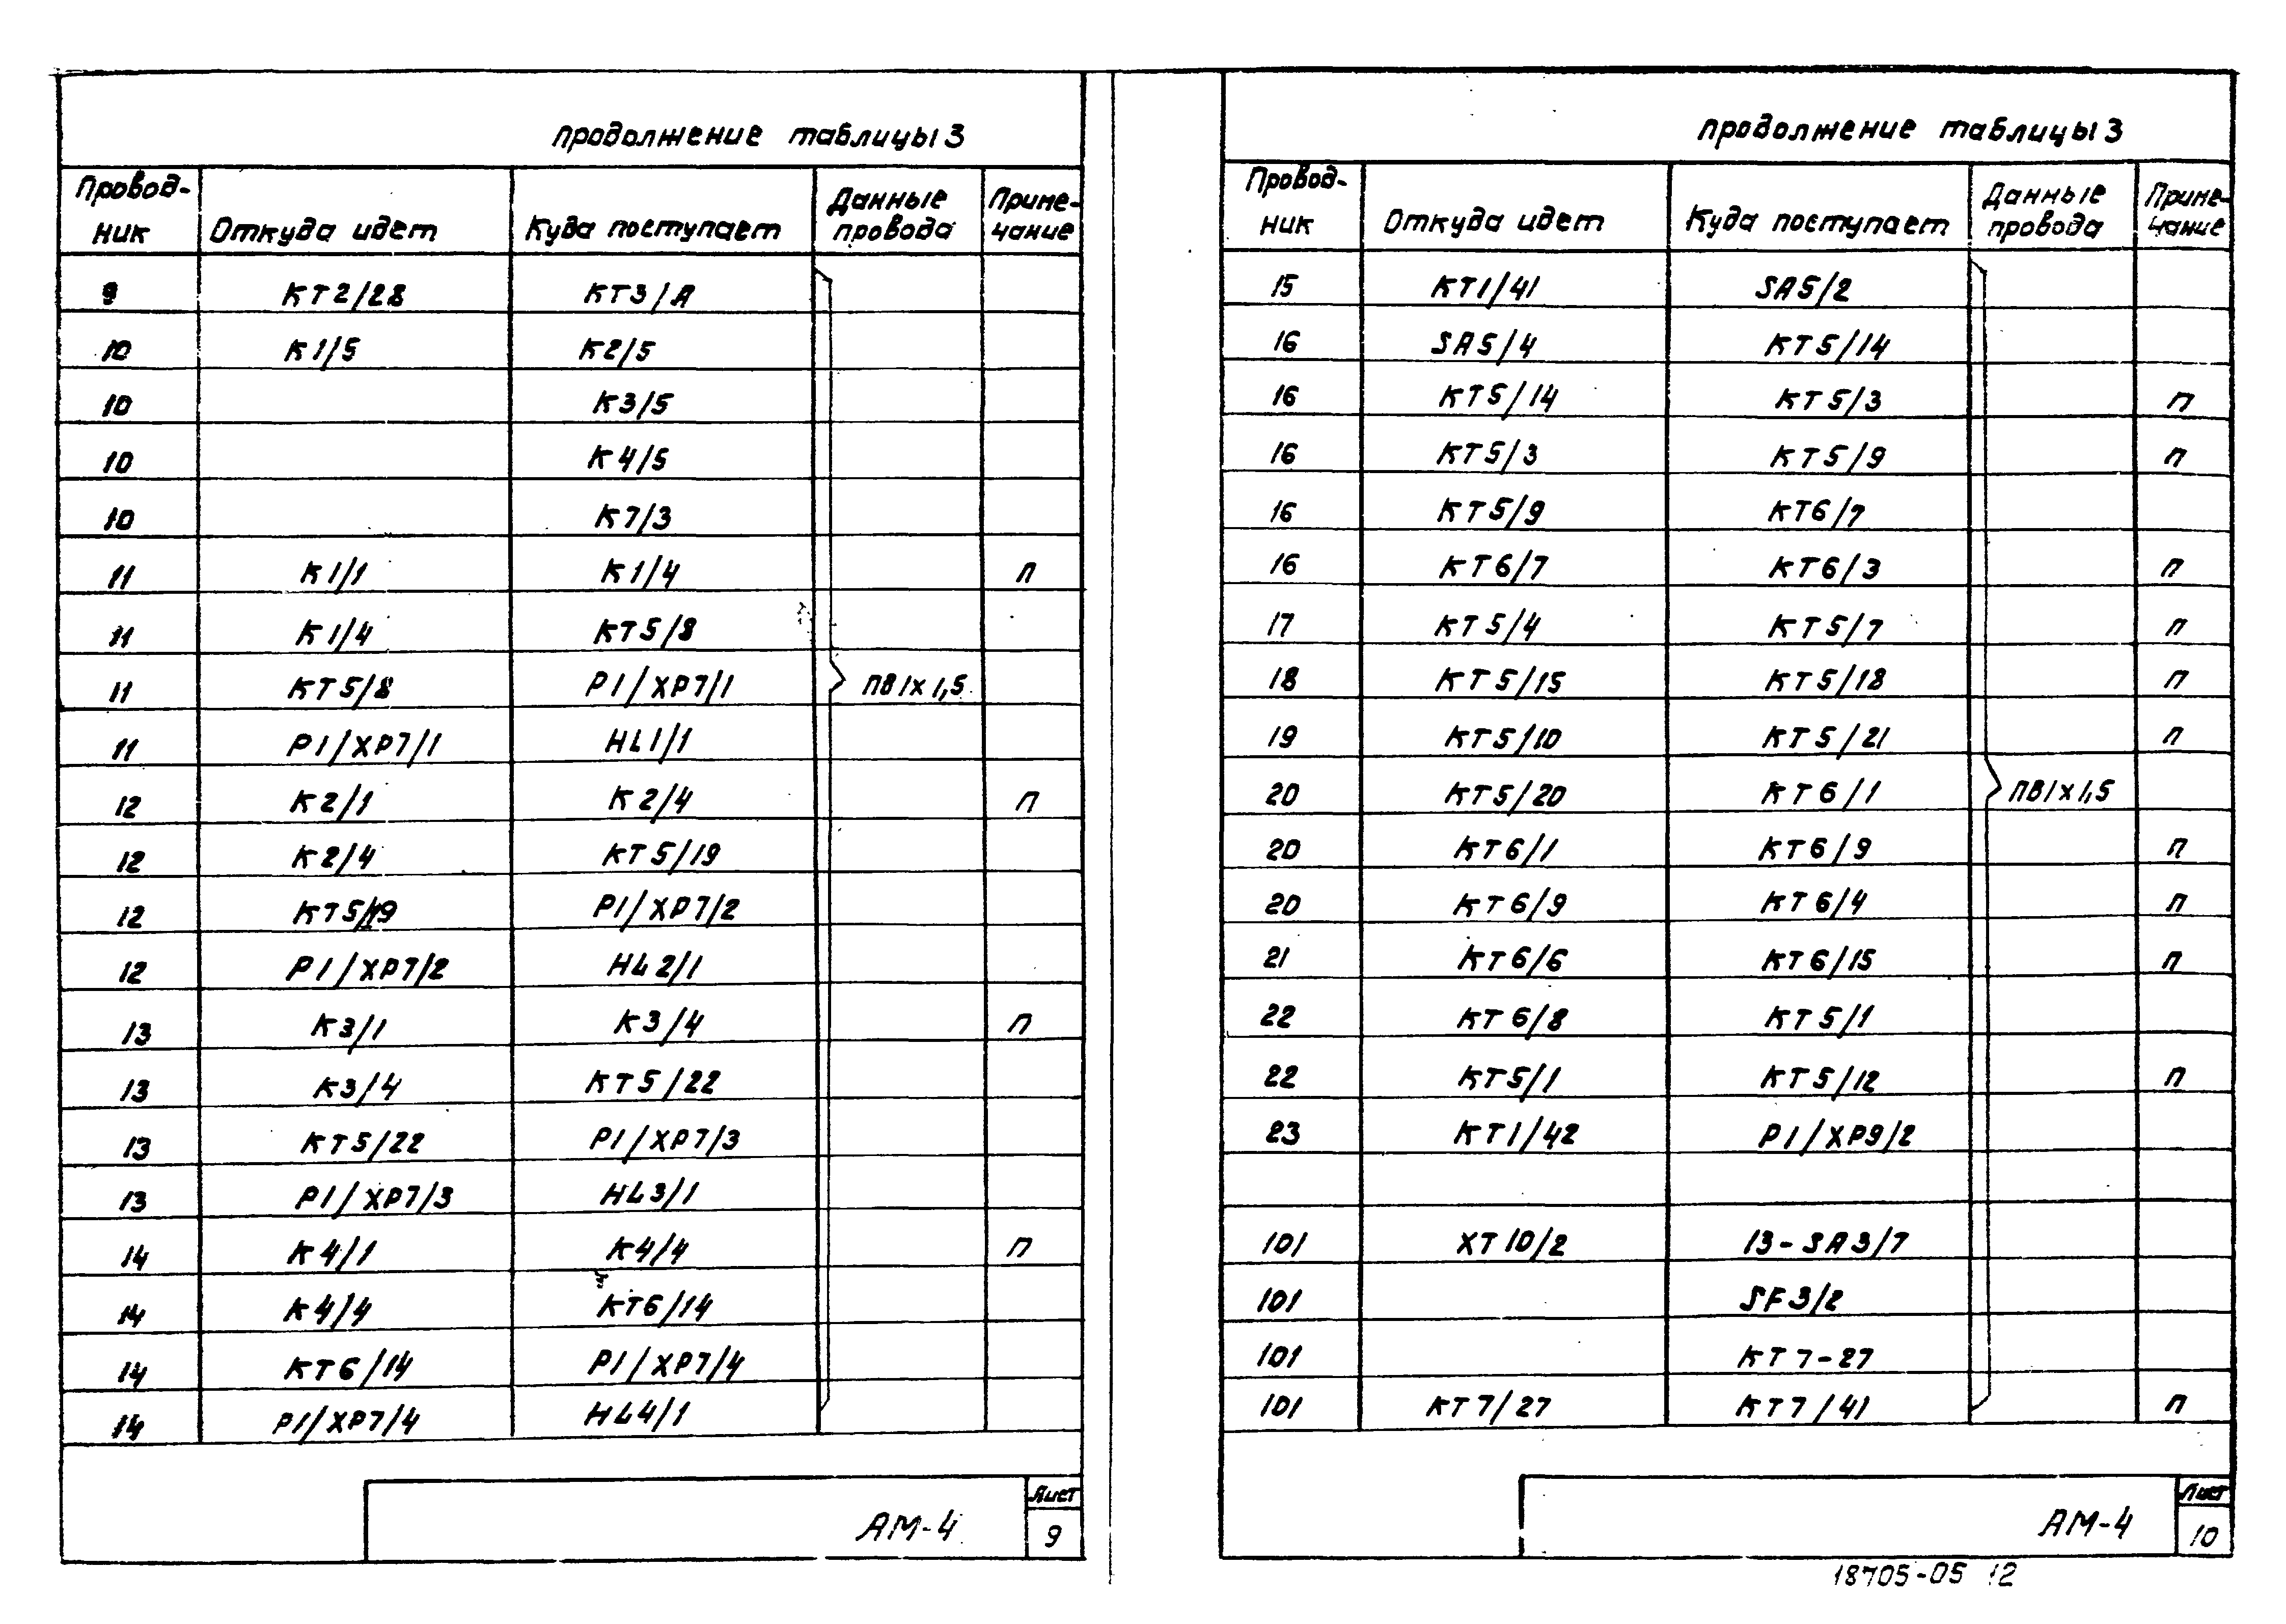 продолжение таблицы 3
Провод-ник Откуда идет Куда поступает Данные провода Приме-чание
9 КТ2/28 КТ3/А
10 К1/5 К2/5
10 К3/5
10 К4/5
10 К7/3
11 К1/1 К1/4 П
11 К1/4 КТ5/8
11 КТ5/8 Р1/ХР7/1 ПВ1х1,5
11 Р1/ХР7/1 HL1/1
12 К2/1 К2/4 П
12 К2/4 КТ5/19
12 КТ5/19 Р1/ХР7/2
12 Р1/ХР7/2 HL2/1
13 К3/1 К3/4 П
13 К3/4 КТ5/22
13 КТ5/22 Р1/ХР7/3
13 Р1/ХР7/3 HL3/1
14 К4/1 К4/4 П
14 К4/4 КТ6/14
14 КТ6/14 Р1/ХР7/4
14 Р1/ХР7/4 HL4/1
АМ-4
Лист
9
продолжение таблицы 3
Провод-ник Откуда идет Куда поступает Данные провода Приме-чание
15 КТ1/41 SA5/2
16 SA5/4 КТ5/14
16 КТ5/14 КТ5/3 П
16 КТ5/3 КТ5/9 П
16 КТ5/9 КТ6/7
16 КТ6/7 КТ6/3 П
17 КТ5/4 КТ5/7 П
18 КТ5/15 КТ5/18 П
19 КТ5/10 КТ5/21 П
20 КТ5/20 КТ6/1 ПВ1х1,5
20 КТ6/1 КТ6/9 П
20 КТ6/9 КТ6/4 П
21 КТ6/6 КТ6/15 П
22 КТ6/8 КТ5/1
22 КТ5/1 КТ5/12 П
23 КТ1/42 Р1/ХР9/2
101 ХТ10/2 13-SA3/7
101 SF3/2
101 КТ7-27
101 КТ7/27 КТ7/41 П
АМ-4
Лист
10
18705-05 12